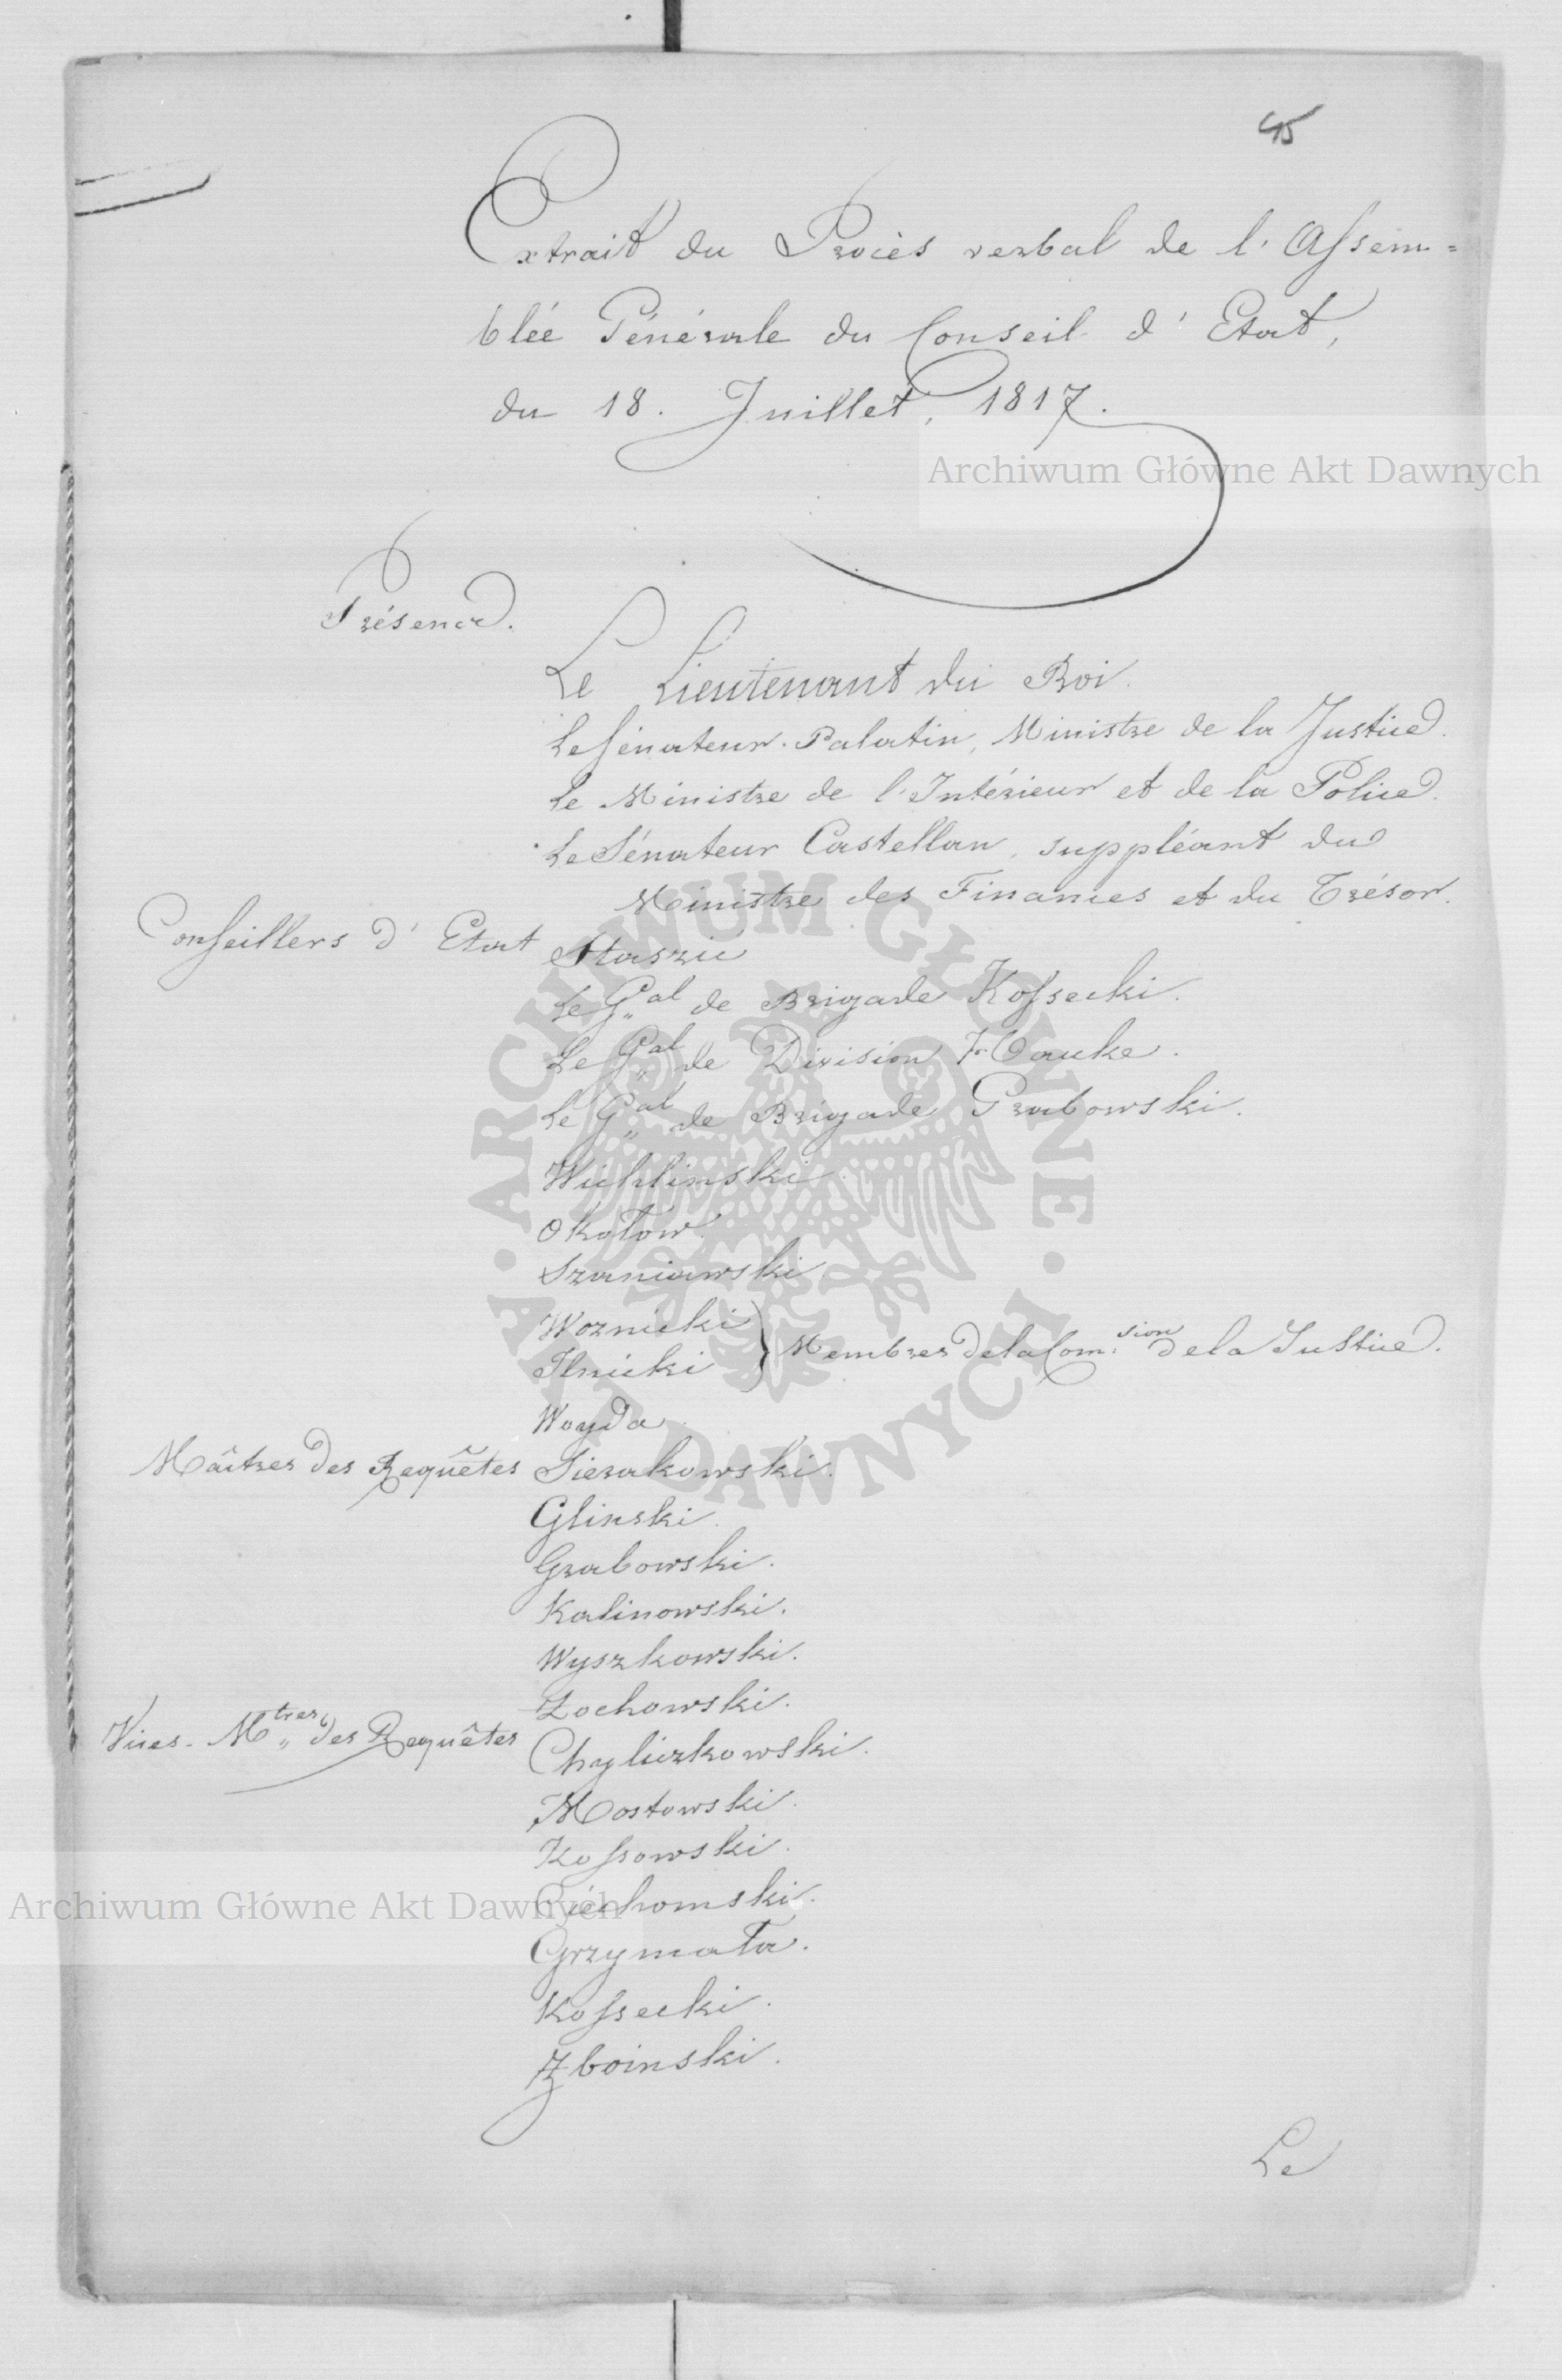 45
Extrait du Procès verbal de l'Assem=
blée Générale du Conseil d'Etat,
du 18. Juillet, 1817.
Archiwum Główne Akt Dawnych
Présence.
Le Lieutenant du Roi.
Le Sénateur-Palatin, Ministre de la Justice.
Le Ministre de l'Intérieur et de la Police.
Le Sénateur Castellan, suppléant du
Ministre des Finances et du Trésor.
Conseillers d'Etat Staszic
Le Gal de Brigade Kossecki.
Le Gal de Division Hauke.
Le Gal de Brigade Grabowski.
Wichlinski
Okołow.
Szaniawski
Woznicki
Ilnicki } Membres de la Com:sion de la Justice.
Woyda.
Maîtres des Requêtes Sierakowski.
Glinski.
Grabowski.
Kalinowski.
Wyszkowski.
Zochowski.
Vices-Mtres des Requêtes Chyliczkowski.
Mostowski.
Kossowski.
Archiwum Główne Akt Dawnych
Ciechomski.
Grzymała.
Kossecki.
Zboinski.
Le
ARCHIWUM GŁÓWNE AKT DAWNYCH